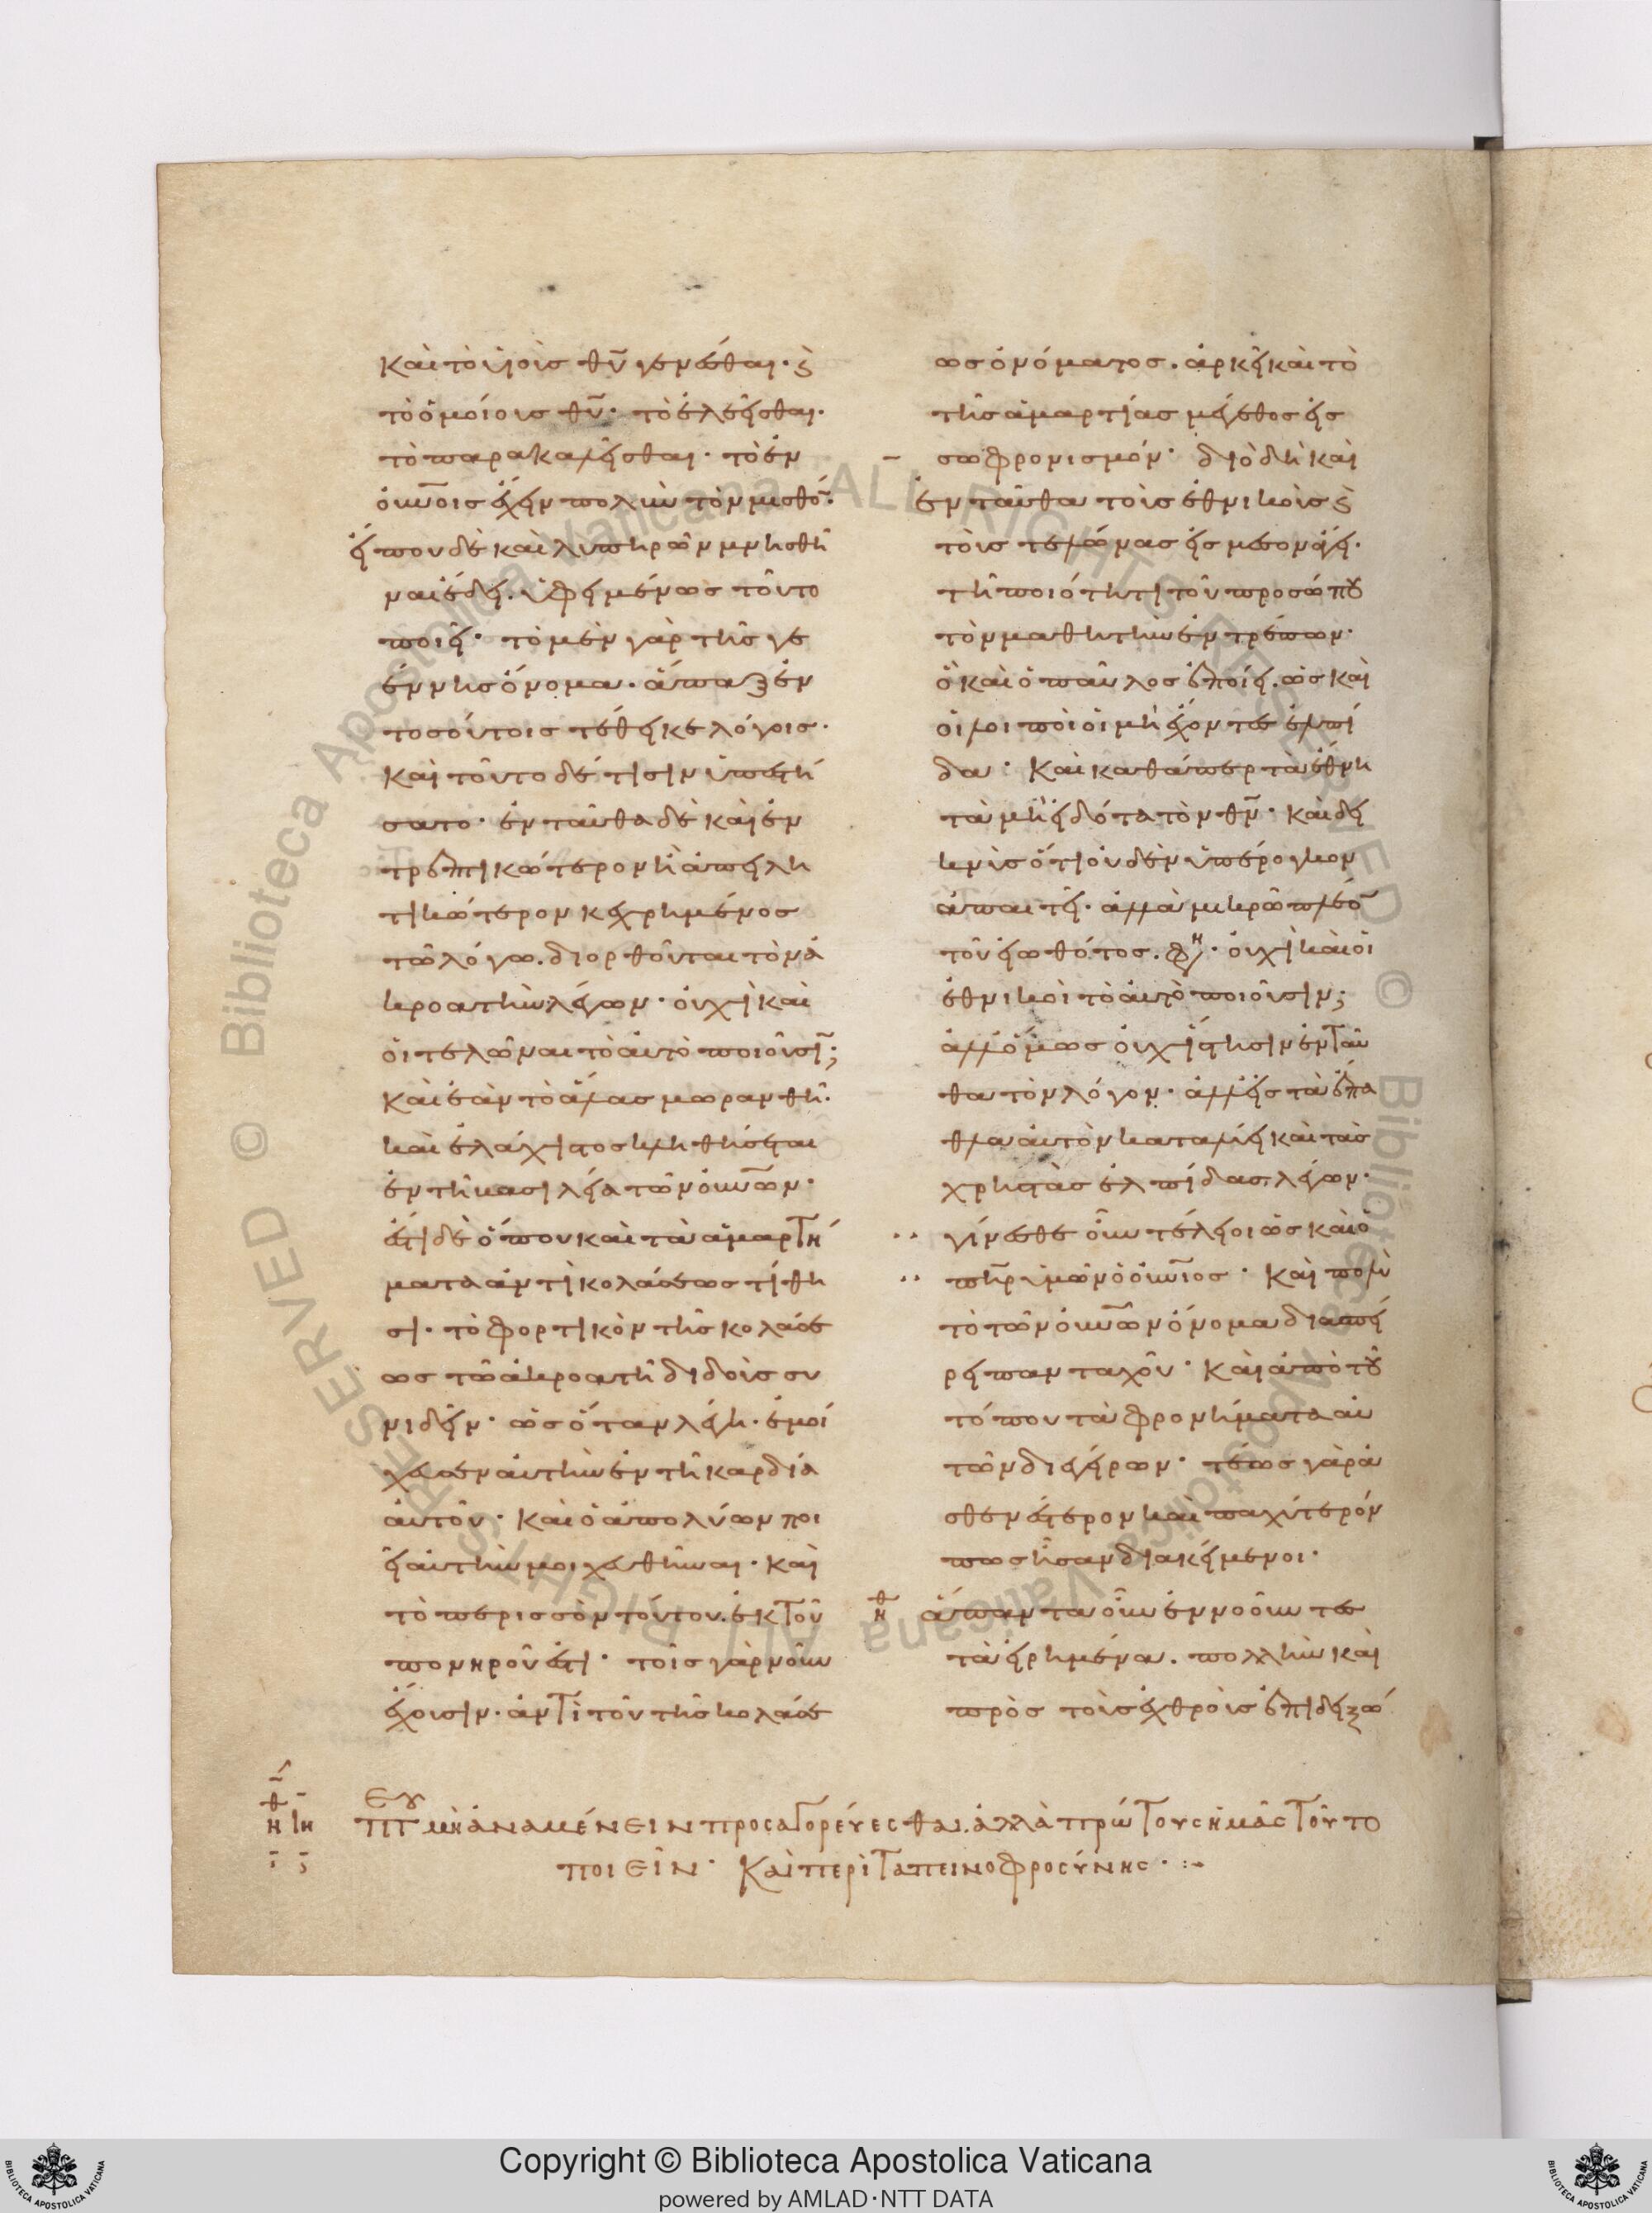 καὶ τὸ υἱοὺς θυ γενέσθαι· ϗ
τὸ ὁμοίους θυ· τὸ ἐλεεῖσθαι·
τὸ παρακαλεῖσθαι· τὸ ἐν
οὐνοις ἔχειν πολὺν τὸν μισθό·
εἴ που δὲ καὶ λυπηρῶν μνησθῆ
ναι ἔδει. ὑφειμένως τοῦτο
ποιεῖ· τὸ μὲν γὰρ τῆς γε
έννης ὄνομα. ἅπαξ ἐν
τοσούτοις τέθεικε λόγοις·
καὶ τοῦτο δέ τισιν ὑπεστή
σατο· ἐνταῦθα δὲ καὶ ἐν
τρεπτικώτερον ἢ ἀπειλη
τικώτερον κεχρημένος
τῶ λόγω. διορθοῦται τὸν ἀ
κροατὴν λέγων· οὐχὶ καὶ
οἱ τελῶναι τὸ αὐτὸ ποιοῦσι;
καὶ ἐὰν τὸ ἅλας μωρανθῆ·
καὶ ἐλάχιστος κληθήσεται
ἐν τῆ βασιλεία τῶν οὐνων·
ἔστι δὲ ὅπου καὶ τὰ ἁμαρτή
ματα ἀντὶ κολάσεως τίθη
σι· τὸ φορτικὸν τῆς κολάσε
ως τῶ ἀκροατῆ διδοὺς συ
νιδεῖν· ὡς ὅταν λέγη· ἐμοί
χευσεν αὐτὴν ἐν τῆ καρδία
αὐτοῦ· καὶ ὁ ἀπολύων ποι
εῖ αὐτὴν μοιχευθῆναι· καὶ
τὸ περισσὸν τούτου. ἐκ τοῦ
πονηροῦ ἐστι· τοῖς γὰρ νοῦν
ἔχουσιν. ἀντὶ τοῦ τῆς κολάσε
ως ὀνόματος. ἀρκεῖ καὶ τὸ
τῆς ἁμαρτίας μέγεθος εἰς
σωφρονισμόν· διὸ δὴ καὶ
ἐνταῦθα τοὺς ἐθνικοὺς ϗ
τοὺς τελώνας εἰς μέσον ἄγει·
τῆ ποιότητι τοῦ προσώπου
τὸν μαθητὴν ἐντρέπων·
ὃ καὶ ὁ παῦλος ἐποίει. ὡς καὶ
οἱ λοιποὶ οἱ μὴ ἔχοντες ἐλπί
δα· καὶ καθάπερ τὰ ἔθνη
τὰ μὴ εἰδότα τὸν θν· καὶ δει
κνὺς ὅτι οὐδὲν ὑπέρογκον
ἀπαιτεῖ· ἀλλὰ μικρῶ πλέο
τοῦ εἰωθότος. φη· οὐχὶ καὶ οἱ
ἐθνικοὶ τὸ αὐτὸ ποιοῦσιν;
ἀλλ ὅμως οὐχ ἵστησιν ἐνταῦ
θα τὸν λόγον· ἀλλ εἰς τὰ ἔπα
θλα αὐτὸν καταλύει καὶ τὰς
χρηστὰς ἐλπίδας λέγων·
γίνεσθε οὖν τέλειοι ὡς καὶ ὁ
πηρ ὑμῶν ὁ οὐνιος· καὶ πολὺ
τὸ τῶν οὐνων ὄνομα διασπεί
ρει πανταχοῦ· καὶ ἀπὸ τοῦ
τόπου τὰ φρονήματα αὐ
τῶν διεγείρων· τέως γὰρ ἀ
σθενέστερον καὶ παχύτερόν
πως ἦσαν διακείμενοι·
ἅπαντα οὖν ἐννοοῦντες
τὰ εἰρημένα. πολλὴν καὶ
πρὸς τοὺς ἐχθροὺς ἐπιδειξώ
μὴ ἀναμένειν προσαγορεύεσθαι. ἀλλὰ πρώτους ἡμᾶς τοῦτο
ποιεῖν· καὶ περὶ ταπεινοφροσύνης·
Copyright © Biblioteca Apostolica Vaticana
powered by AMLAD·NTT DATA